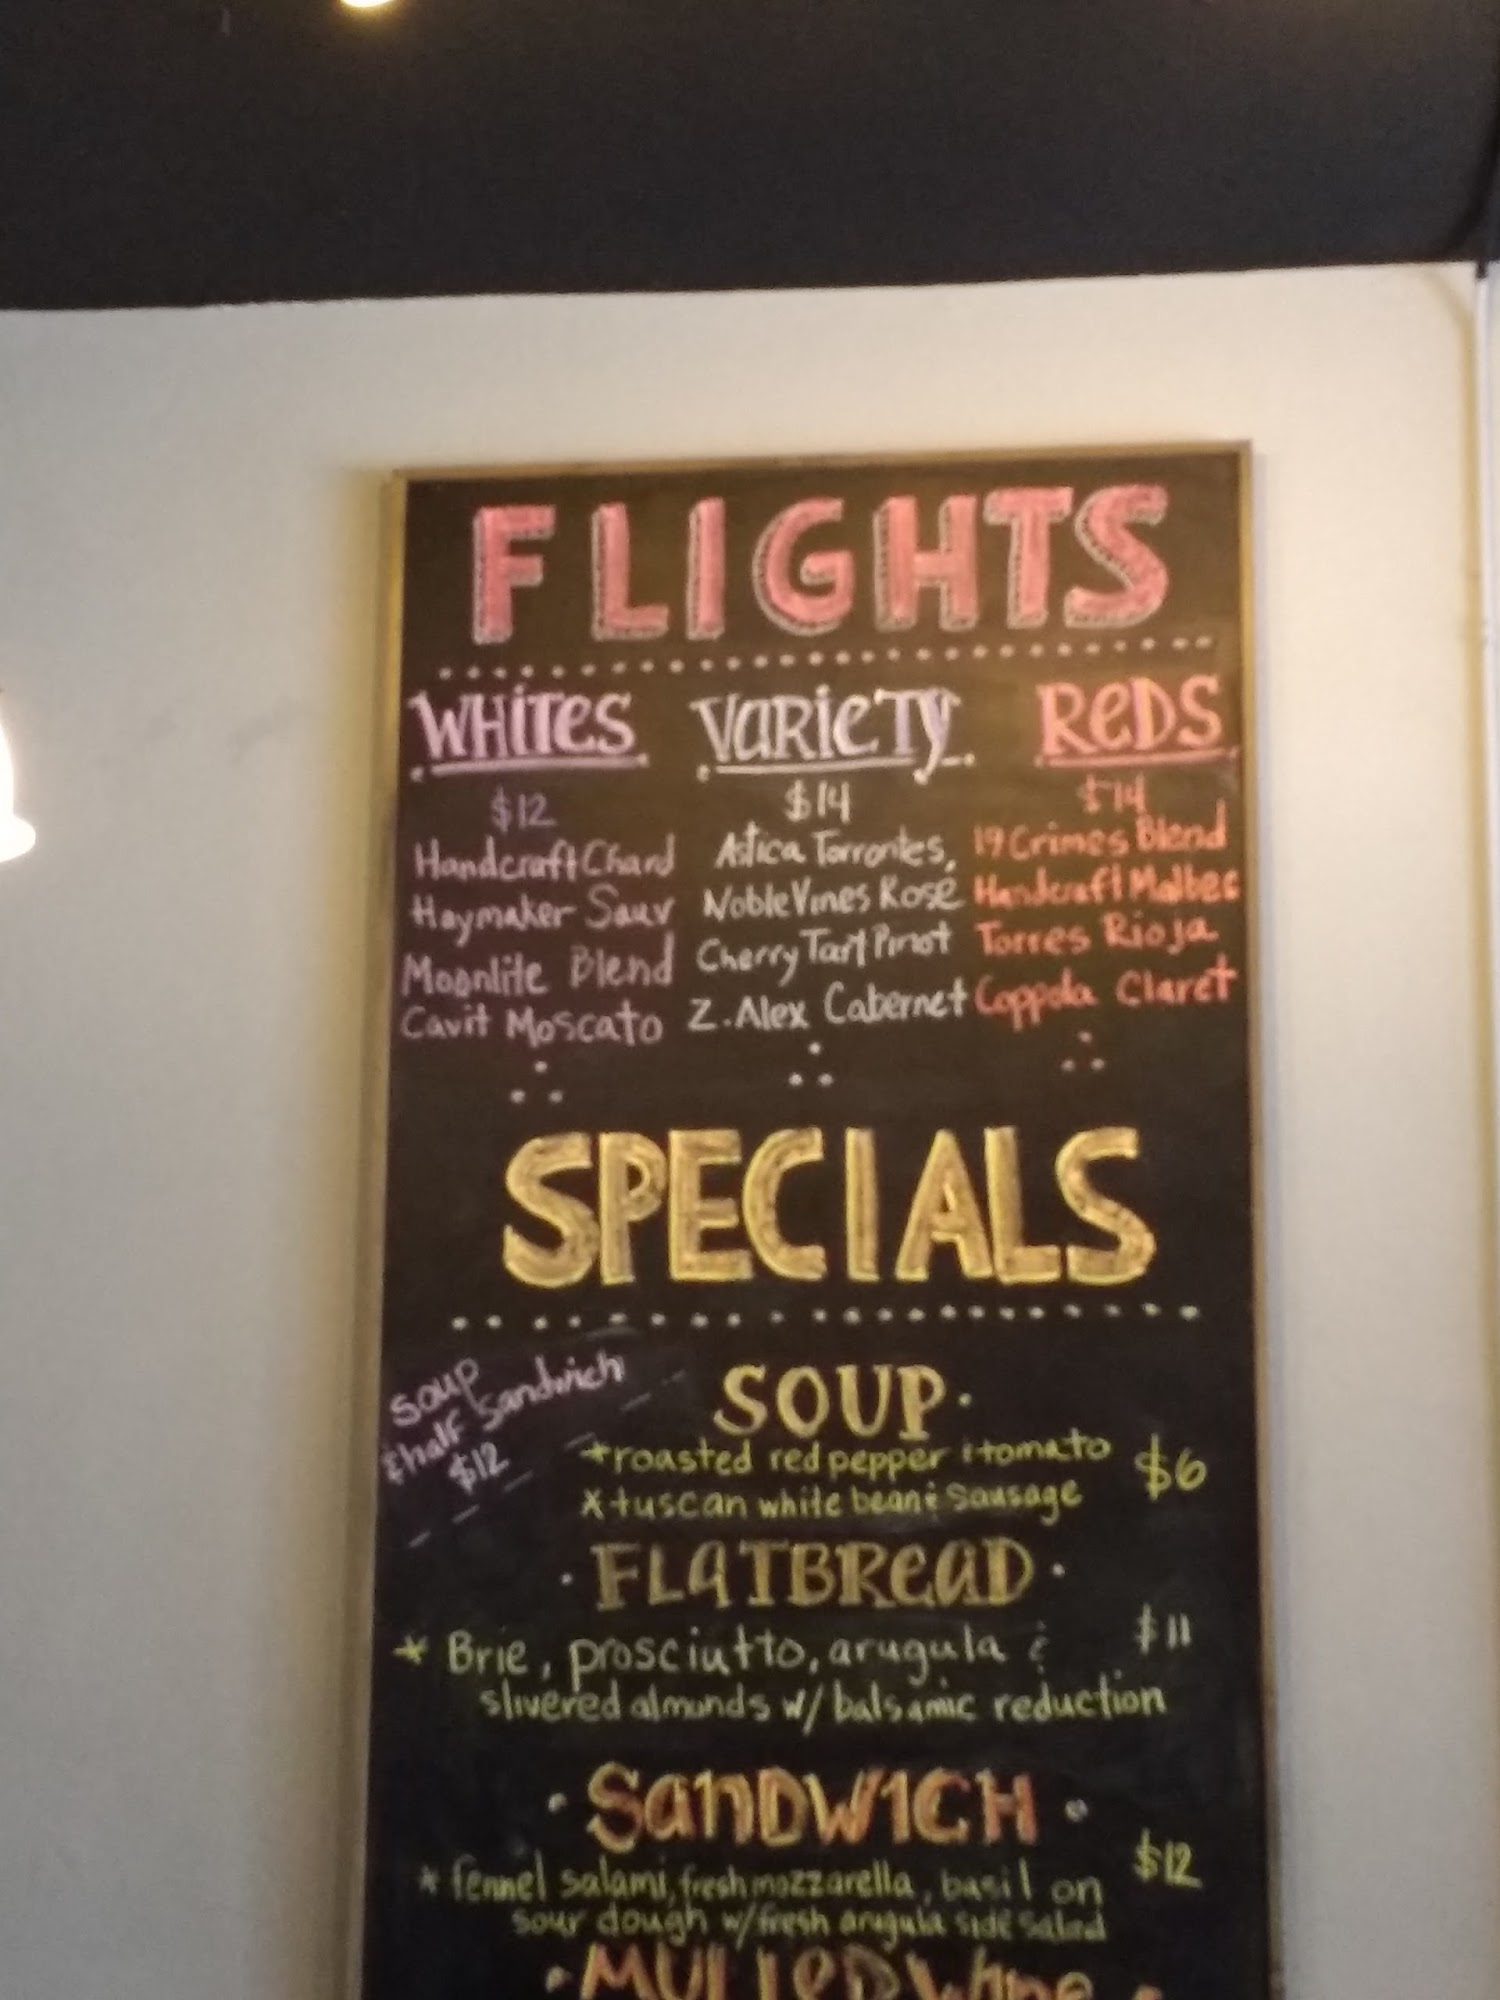 FLIGHTS
WHITES
$12
Handcraft Chard
Haymaker Sauv
Moonlite Blend
Cavit Moscato
VARIETY
$14
Astica Torrontes,
Noble Vines Rosé
Cherry Tart Pinot
Z. Alex Cabernet
REDS
$14
19 Crimes Blend
Handcraft Malbec
Torres Rioja
Coppola Claret
SPECIALS
soup
& half sandwich
$12
SOUP
*roasted red pepper & tomato
*tuscan white bean & sausage
$6
FLATBREAD
* Brie, prosciutto, arugula &
slivered almonds w/ balsamic reduction
$11
SANDWICH
* fennel salami, fresh mozzarella, basil on
sour dough w/ fresh arugula side salad
$12
MULLED Wine